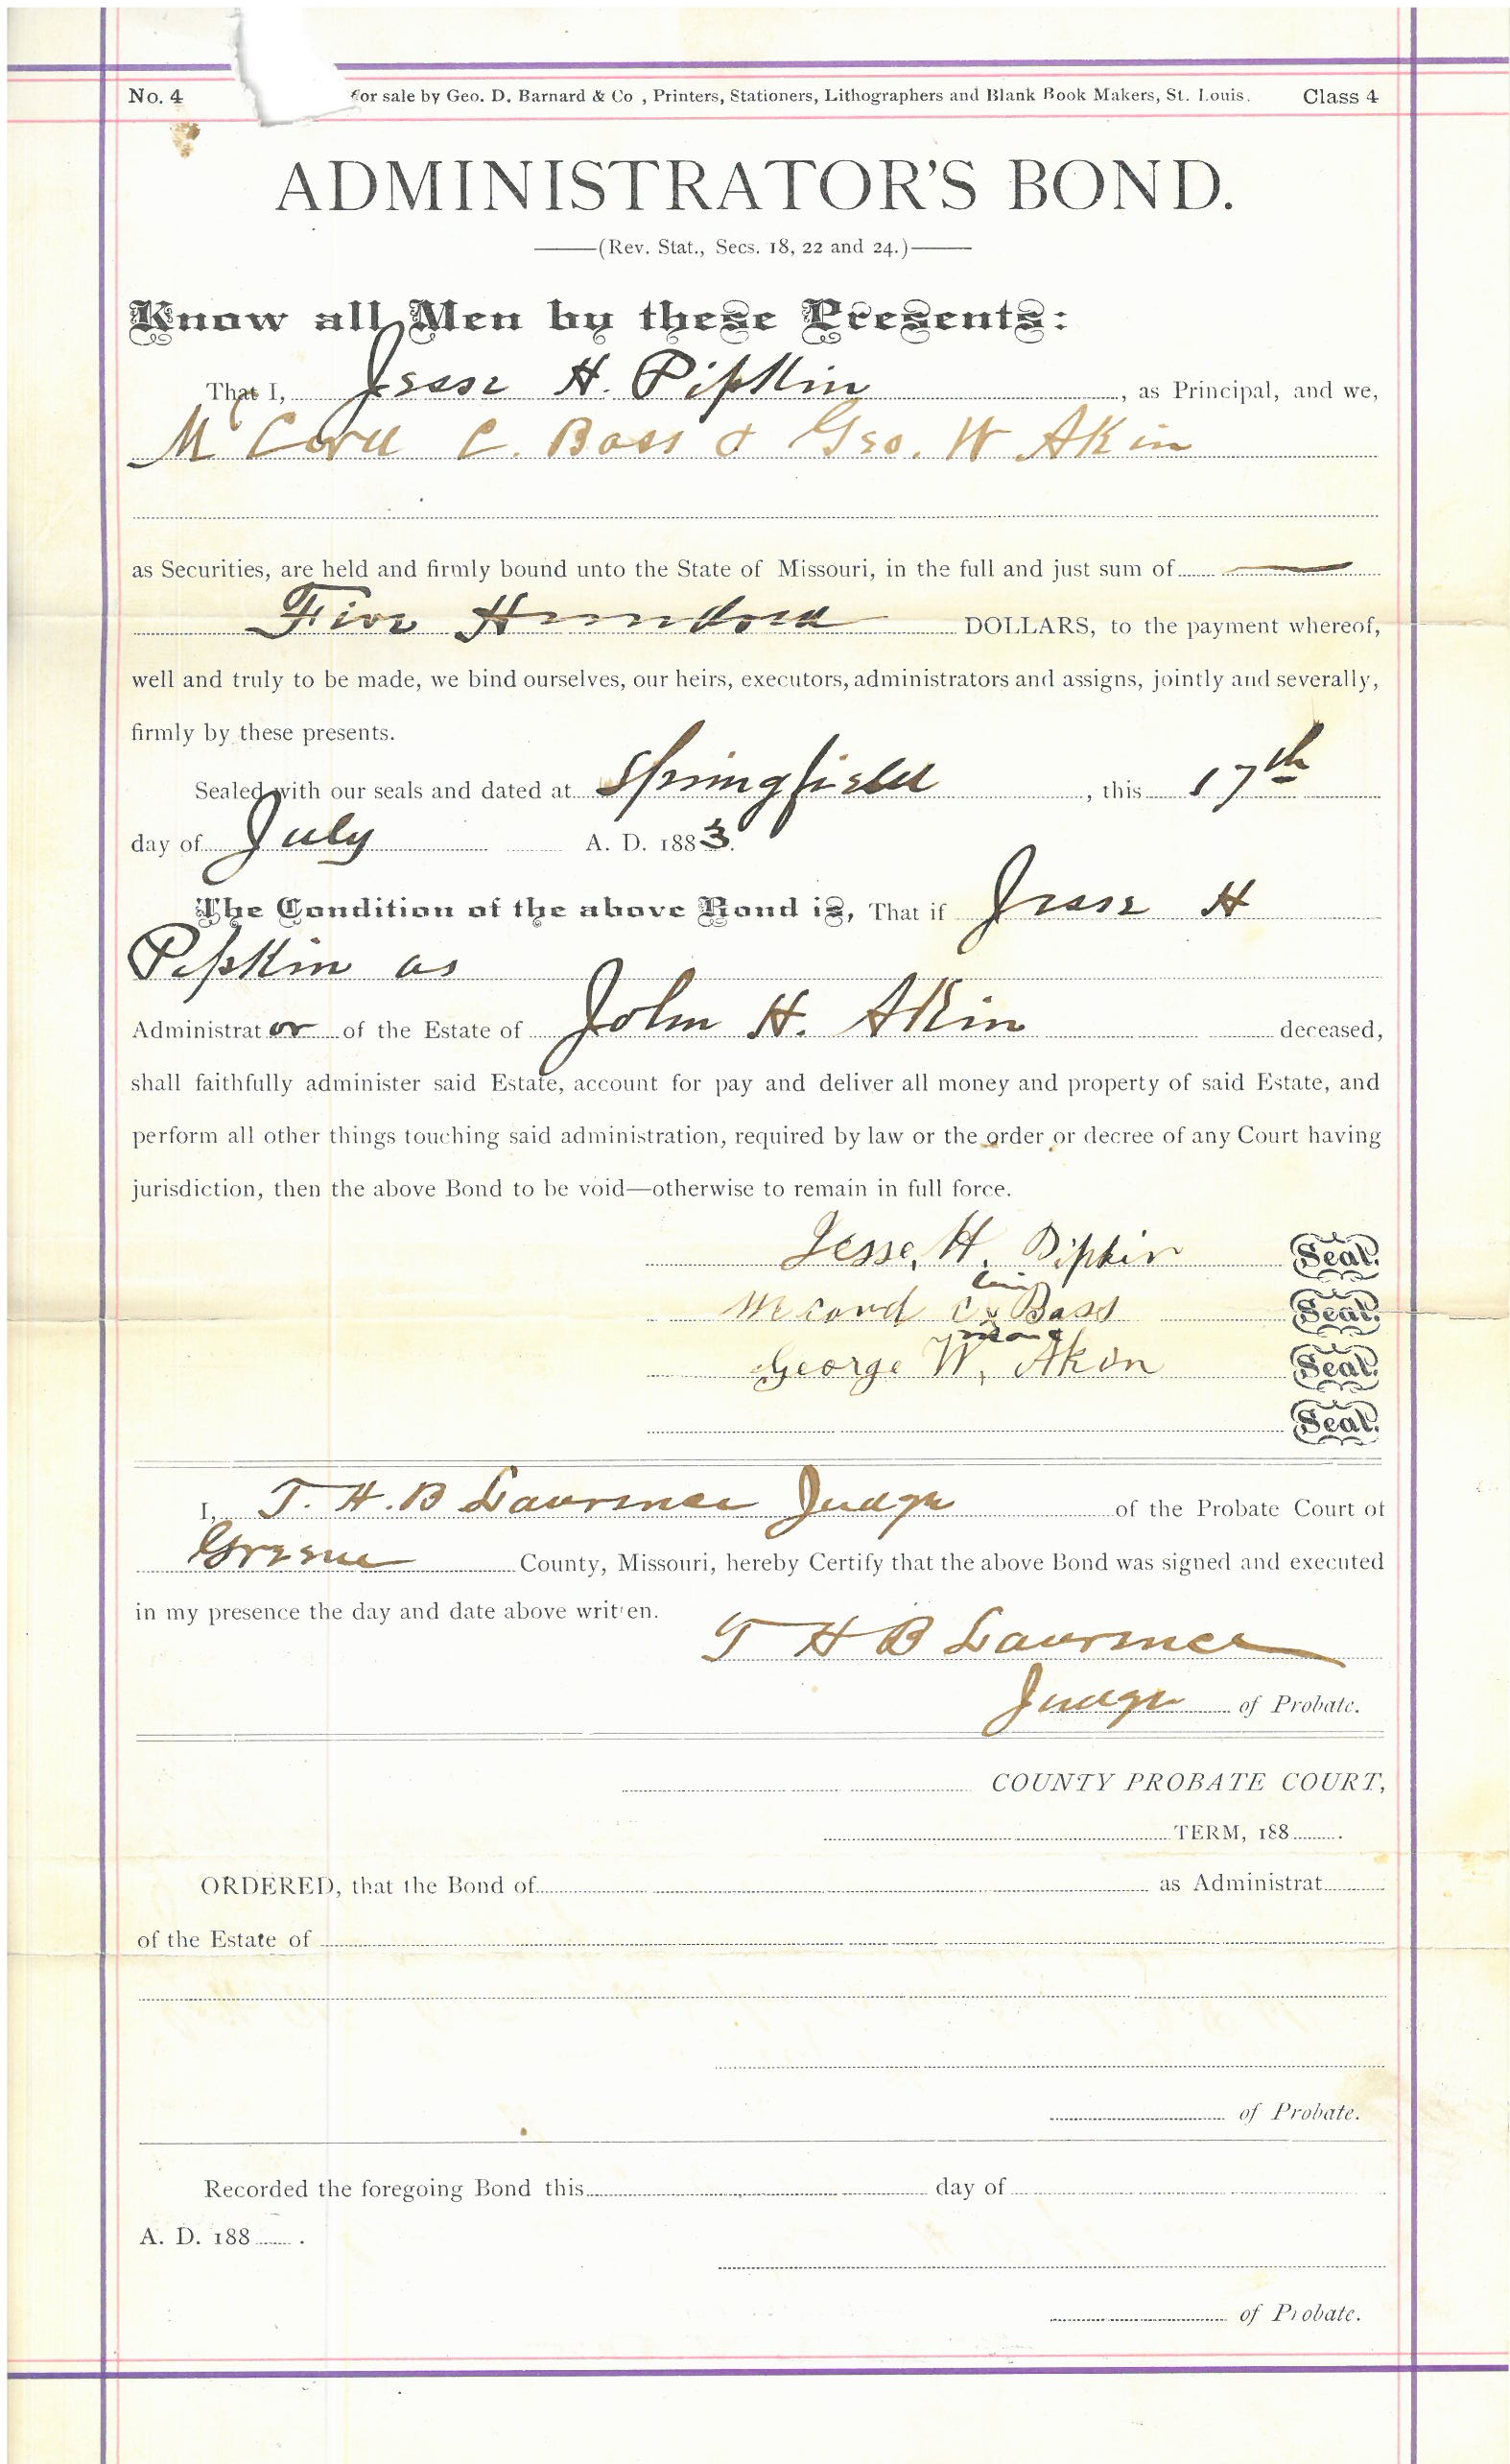 No. 4 For sale by Geo. D. Barnard & Co , Printers, Stationers, Lithographers and Blank Book Makers, St. Louis. Class 4
ADMINISTRATOR'S BOND.
(Rev. Stat., Secs. 18, 22 and 24.)
Know all Men by these Presents:
That I, Jesse H. Pipkin, as Principal, and we,
McCord C. Bass & Geo. W Akin
as Securities, are held and firmly bound unto the State of Missouri, in the full and just sum of
Five Hundred DOLLARS, to the payment whereof,
well and truly to be made, we bind ourselves, our heirs, executors, administrators and assigns, jointly and severally,
firmly by these presents.
Sealed with our seals and dated at Springfield, this 17th
day of July A. D. 1883.
The Condition of the above Bond is, That if Jesse H
Pipkin as
Administrator of the Estate of John H. Akin deceased,
shall faithfully administer said Estate, account for pay and deliver all money and property of said Estate, and
perform all other things touching said administration, required by law or the order or decree of any Court having
jurisdiction, then the above Bond to be void—otherwise to remain in full force.
Jesse, H. Pipkin Seal.
his
McCord C x Bass Seal.
mark
George W, Akin Seal.
Seal.
I, T. H. B Lawrence Judge of the Probate Court of
Greene County, Missouri, hereby Certify that the above Bond was signed and executed
in my presence the day and date above written.
T H B Lawrence
Judge of Probate.
COUNTY PROBATE COURT,
TERM, 188 .
ORDERED, that the Bond of as Administrat
of the Estate of
of Probate.
Recorded the foregoing Bond this day of
A. D. 188 .
of Probate.